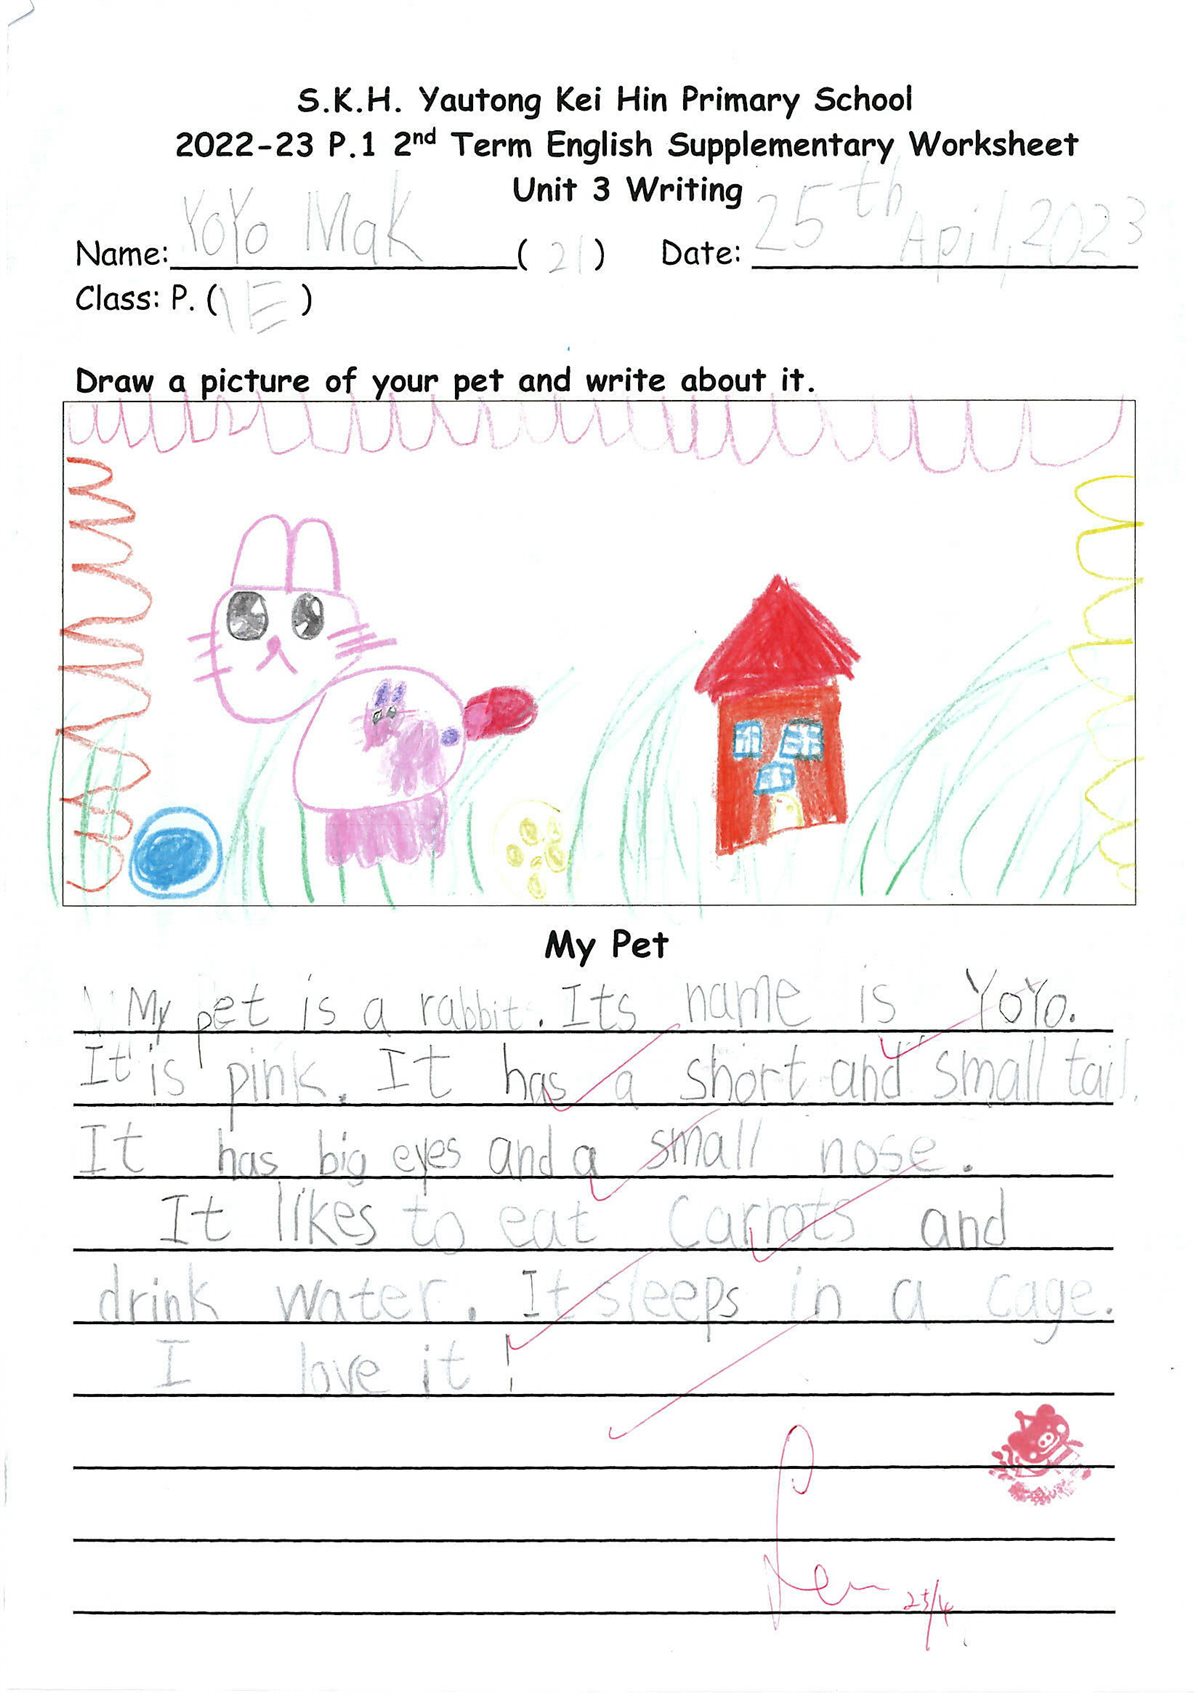 S.K.H. Yautong Kei Hin Primary School
2022-23 P.1 2nd Term English Supplementary Worksheet
Unit 3 Writing
Name: YoYo Mak (21) Date: 25th April, 2023
Class: P. (1E)
Draw a picture of your pet and write about it.
My Pet
My pet is a rabbit. Its name is YoYo.
It is pink. It has a short and small tail.
It has big eyes and a small nose.
It likes to eat carrots and
drink water. It sleeps in a cage.
I love it!
25/4